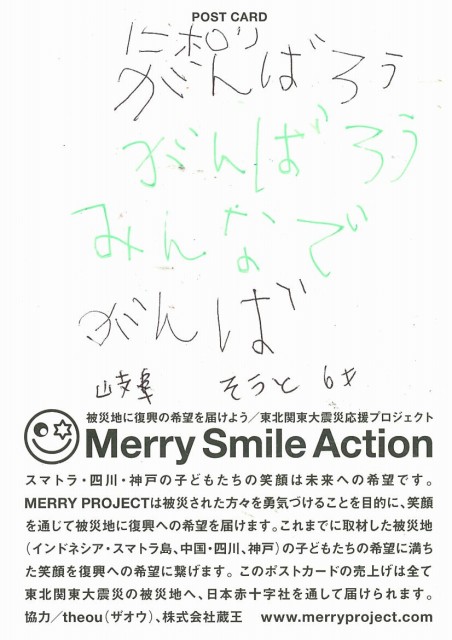 POST CARD
がんばろう
がんばろう
みんなで
がんば
岐阜 そうと 6才
被災地に復興の希望を届けよう／東北関東大震災応援プロジェクト
Merry Smile Action
スマトラ・四川・神戸の子どもたちの笑顔は未来への希望です。
MERRY PROJECTは被災された方々を勇気づけることを目的に、笑顔
を通じて被災地に復興への希望を届けます。これまでに取材した被災地
（インドネシア・スマトラ島、中国・四川、神戸）の子どもたちの希望に満ち
た笑顔を復興への希望に繋げます。このポストカードの売上げは全て
東北関東大震災の被災地へ、日本赤十字社を通して届けられます。
協力／theou（ザオウ）、株式会社蔵王 www.merryproject.com